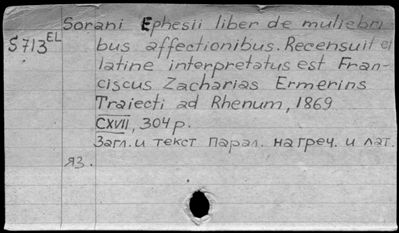 Sorani Ephesii liber de muliebri
S 713 EL
bus affectionibus. Recensuit et
latine interpretatus est Fran-
ciscus Zacharias Ermerins
Traiecti ad Rhenum, 1869
CXVII, 304 p.
Загл. и текст парал. на греч. и лат.
яз.